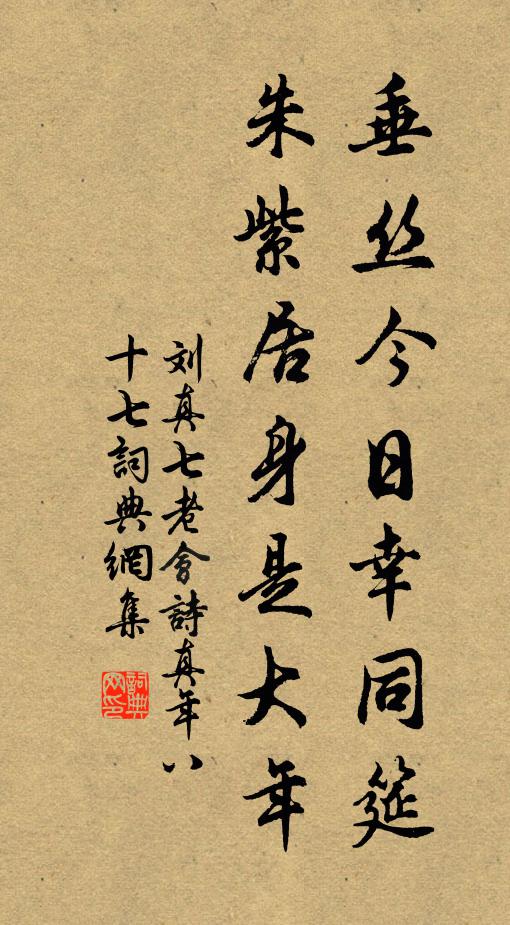 垂丝今日幸同筵
朱紫居身是大年
刘真七老會詩真年八
十七詞典網集
詞典網印